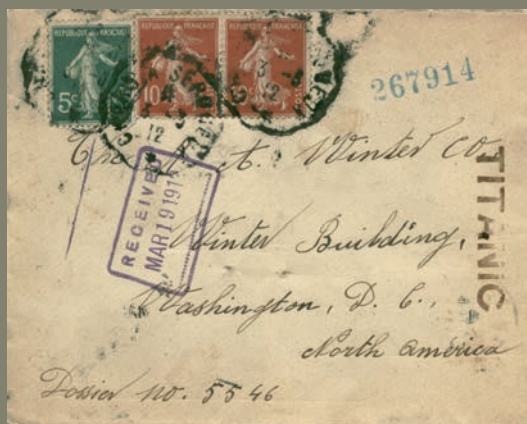 REPUBLIQUE FRANÇAISE
5c
REPUBLIQUE FRANÇAISE
10
REPUBLIQUE FRANÇAISE
12
267914
The Winter Co.
RECEIVED
MAR 19 191
Winter Building,
Washington, D. C.,
North America
Dossier no. 5546
TITANIC